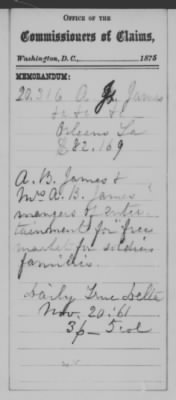 OFFICE OF THE
Commissioners of Claims,
Washington, D. C., 1875
MEMORANDUM:
20,216 A James
Orleans La
$82.169
A. B. James &
Mrs A. B. James
mangers of enter-
tainment for "free
market for soldiers
families.
Daily True Delta
Nov. 20. '61
3p 5 col